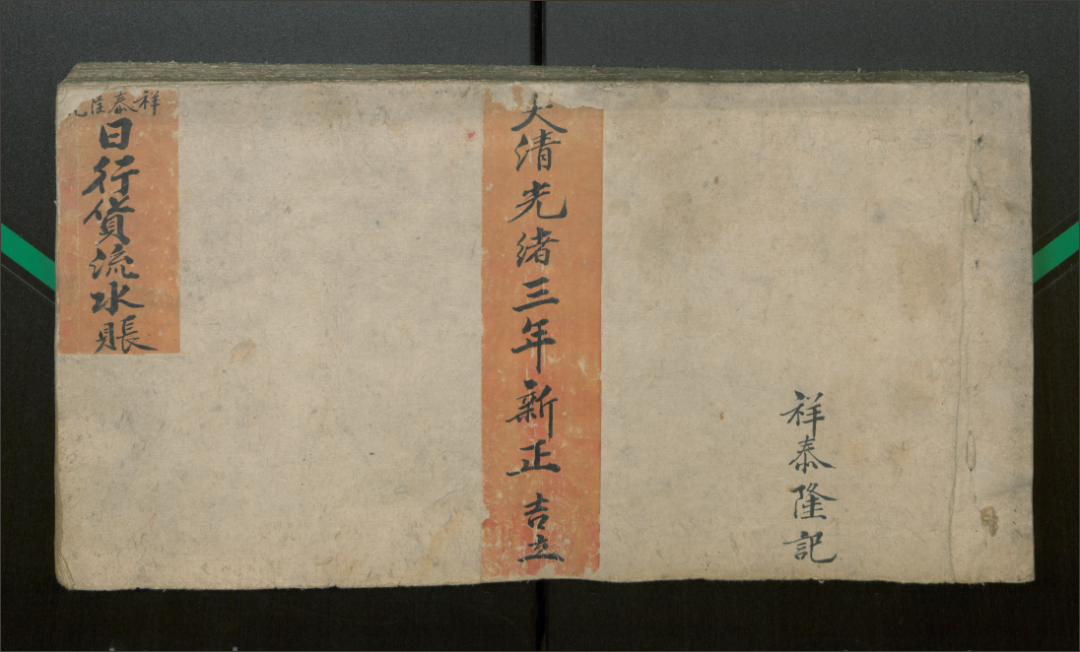 祥泰隆記
大清光緒三年新正吉立
祥泰
日行貨流水賬